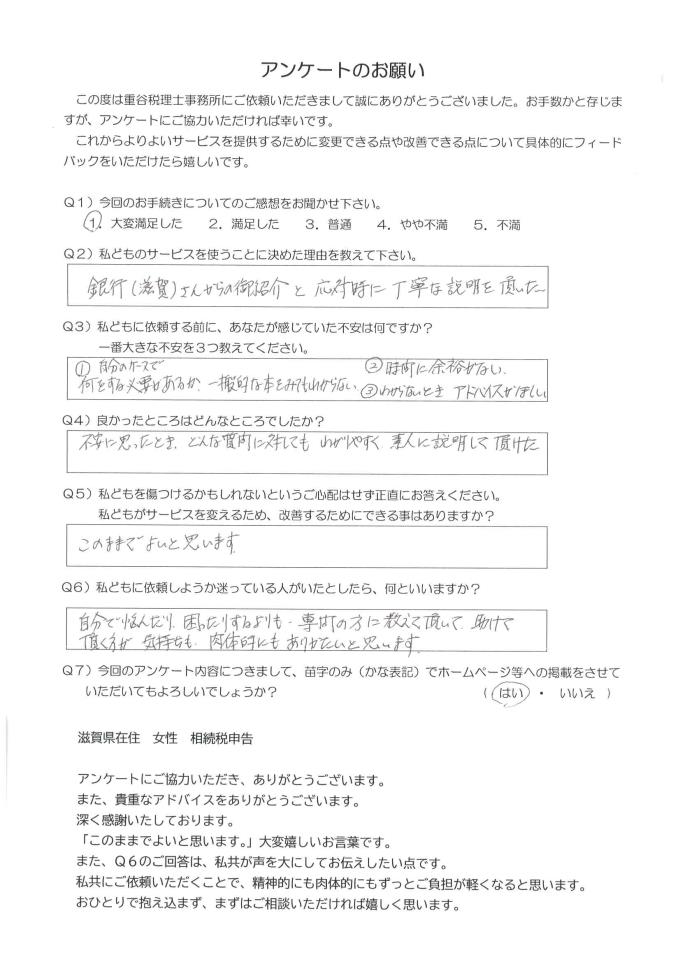 アンケートのお願い
この度は重谷税理士事務所にご依頼いただきまして誠にありがとうございました。お手数かと存じま
すが、アンケートにご協力いただければ幸いです。
これからよりよいサービスを提供するために変更できる点や改善できる点について具体的にフィード
バックをいただけたら嬉しいです。
Q1）今回のお手続きについてのご感想をお聞かせ下さい。
1. 大変満足した 2. 満足した 3. 普通 4. やや不満 5. 不満
Q2）私どものサービスを使うことに決めた理由を教えて下さい。
銀行(滋賀)さんからの御紹介と 応対時に丁寧な説明を頂いた
Q3）私どもに依頼する前に、あなたが感じていた不安は何ですか？
一番大きな不安を３つ教えてください。
① 自分のケースで ② 時間に余裕がない
何をする必要があるか 一般的な本をみてもわからない ③わからないとき アドバイスがほしい
Q4）良かったところはどんなところでしたか？
不安に思ったとき、どんな質問に対しても わかりやすく 素人に説明して頂けた
Q5）私どもを傷つけるかもしれないというご心配はせず正直にお答えください。
私どもがサービスを変えるため、改善するためにできる事はありますか？
このままでよいと思います
Q6）私どもに依頼しようか迷っている人がいたとしたら、何といいますか？
自分で悩んだり、困ったりするよりも、専門の方に教えて頂いて、助けて
頂く方が 気持ちも、肉体的にも ありがたいと思います
Q7）今回のアンケート内容につきまして、苗字のみ（かな表記）でホームページ等への掲載をさせて
いただいてもよろしいでしょうか？ （ はい ・ いいえ ）
滋賀県在住 女性 相続税申告
アンケートにご協力いただき、ありがとうございます。
また、貴重なアドバイスをありがとうございます。
深く感謝いたしております。
「このままでよいと思います。」大変嬉しいお言葉です。
また、Q６のご回答は、私共が声を大にしてお伝えしたい点です。
私共にご依頼いただくことで、精神的にも肉体的にもずっとご負担が軽くなると思います。
おひとりで抱え込まず、まずはご相談いただければ嬉しく思います。